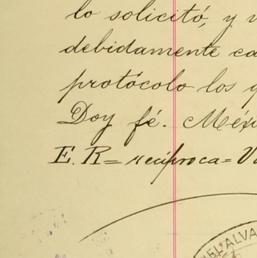 lo solicitó, y
debidamente ca
protócolo los
Doy fé. Méxi
E. R = recíproca = V
EL ALVA